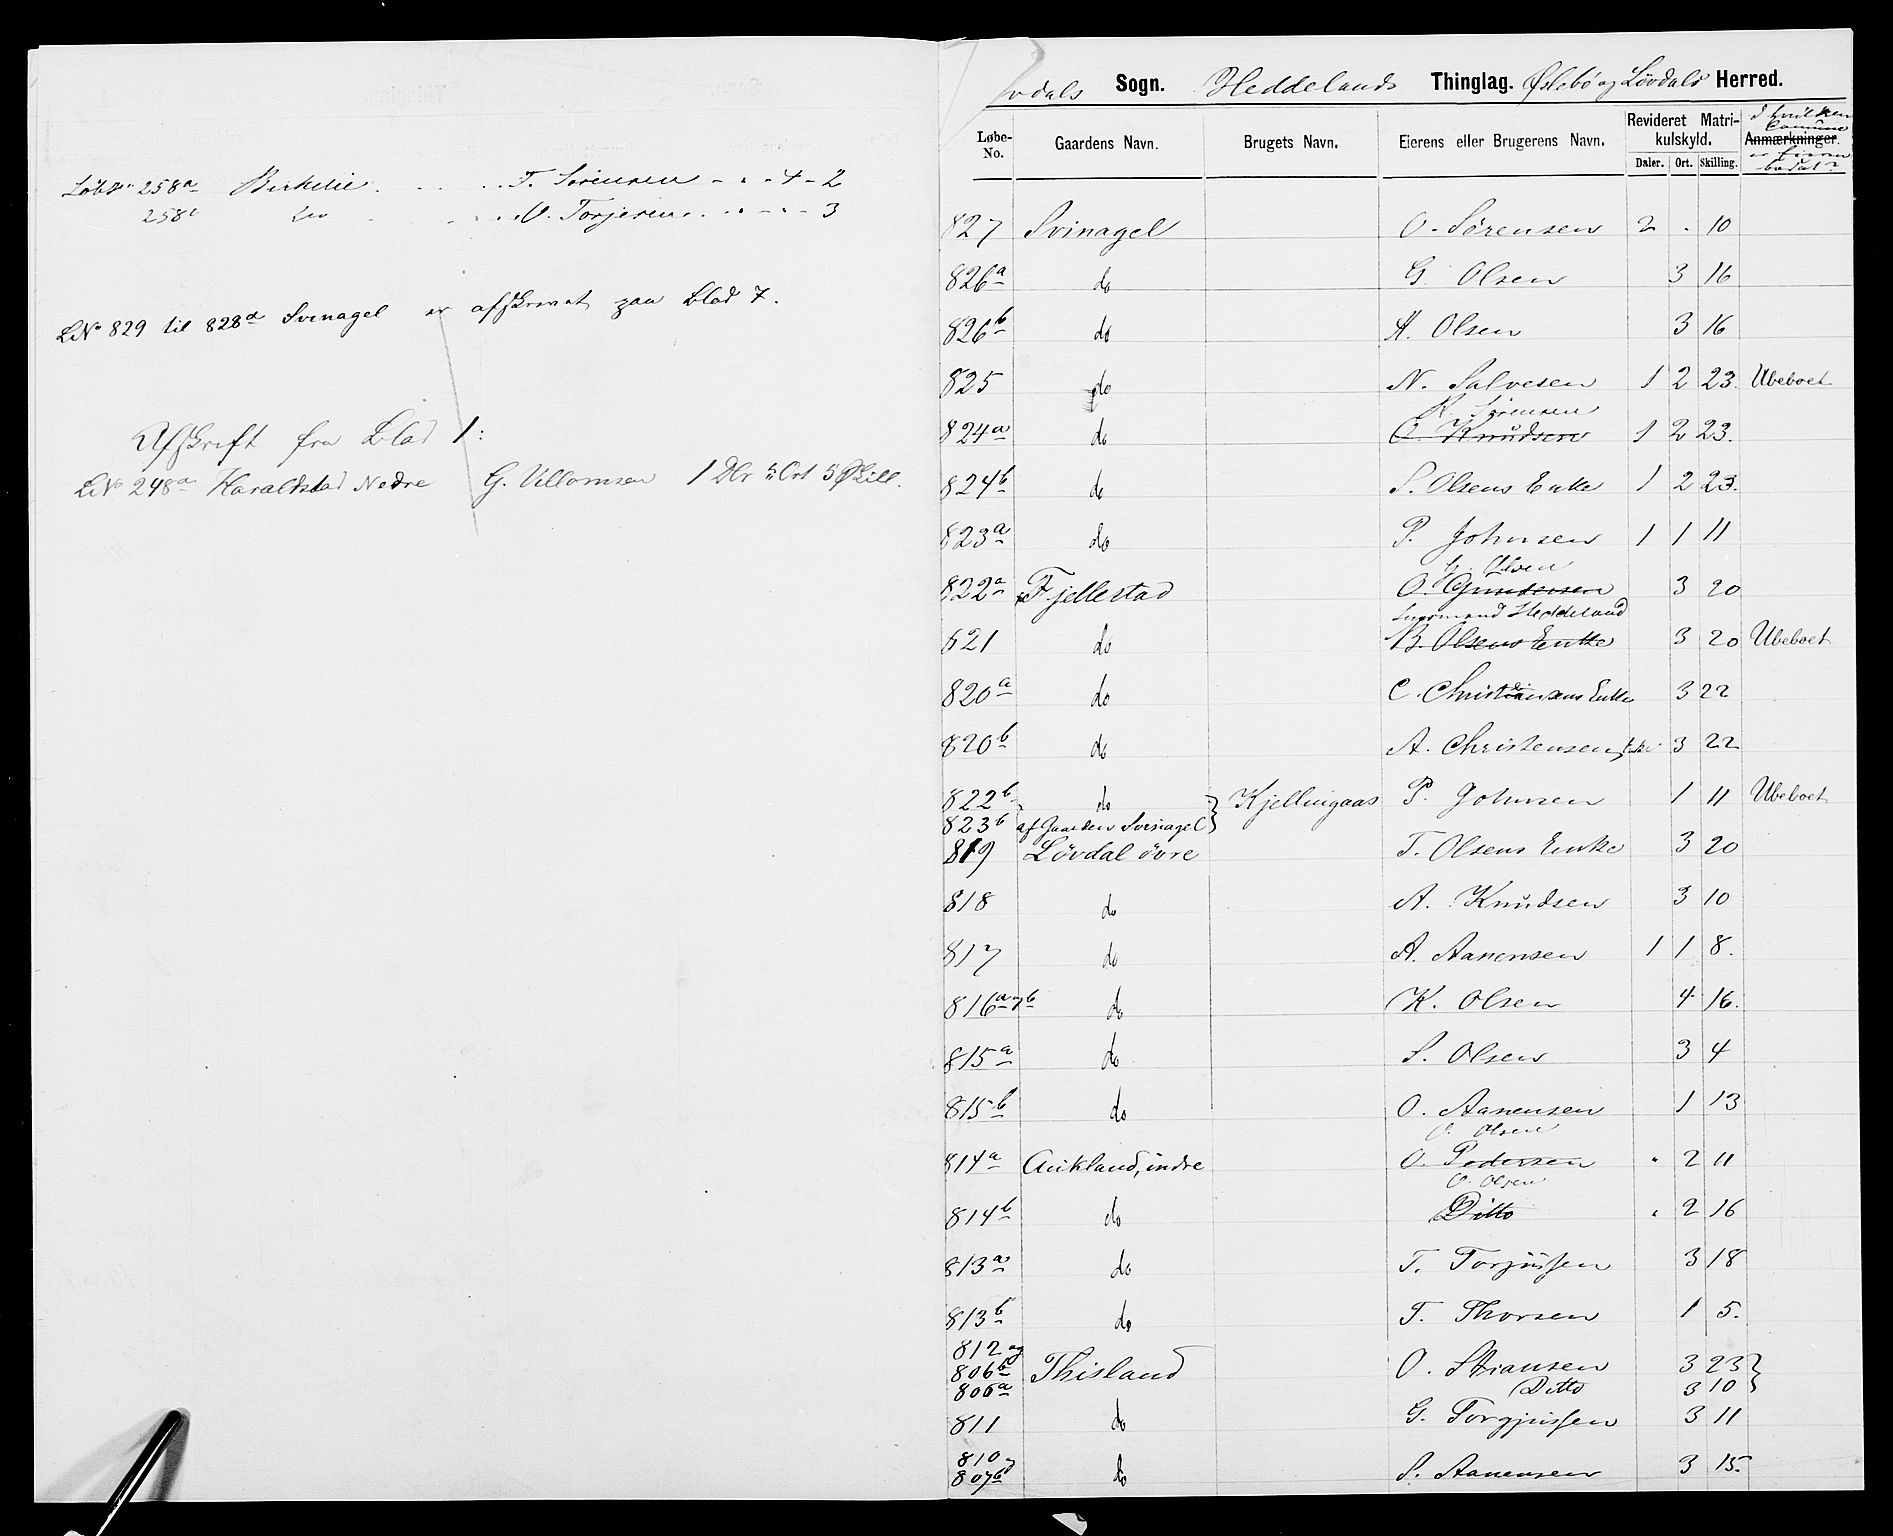 Løbno 258a Birkelie . . . . T. Sørensen - " - 4 - 2
258c do . . . . O. Torjesen . . " - " - 3
LNo 829 til 828d Svinagel er afskrevet paa Blad 7.
Afskrift fra Blad 1:
LNo 248a Haraldstad Nedre G. Villomsen 1 Dlr " Ort 5 Skill.
Sogn. Heddelands Thinglag. Øslebø og Løvdals Herred.
Løbe-No. Gaardens Navn. Brugets Navn. Eierens eller Brugerens Navn. Revideret Matrikulskyld. Daler. Ort. Skilling. Anmærkninger. I hvilken Commune er Eieren bosat?
827 Svinagel O. Sørensen 2 . 10
826a do G Olsen 3 16
826b do A. Olsen 3 16
825 do N. Salvesen 1 2 23. Ubeboet
K. Sørensen
824a do O. Knudsen 1 2 23.
824b do S. Olsens Enke 1 2 23.
823a do P. Johnsen 1 1 11
G. Olsen
822a Fjellestad O. Gundersen 3 20
Lensmand Heddeland
821 do B. Olsens Enke 3 20 Ubeboet
820a do C. Christiansens Enke 3 22
820b do A. Christensens Enke 3 22
822b do } Kjellingaas P. Johnsen 1 11 Ubeboet
823b af Gaarden Svinagel
819 Løvdal øvre T. Olsens Enke 3 20
818 do A. Knudsen 3 10
817 do A. Aanensen 1 1 8.
816a og b do K. Olsen 4 16.
815a do S. Olsen 3 4
815b do O. Aanensen 1 13
O. Olsen
814a Aukland, indre O. Pedersen " 2 11
O. Olsen
814b do Ditto " 2 16
813a do T. Torjussen 3 18
813b do T. Thorsen 1 5.
812 og
806b Thisland O. Stiansen 3 23 }
806a Ditto 3 10
811 do G. Torgjussen 3 11
810 og
807b do S. Aanensen 3 15.